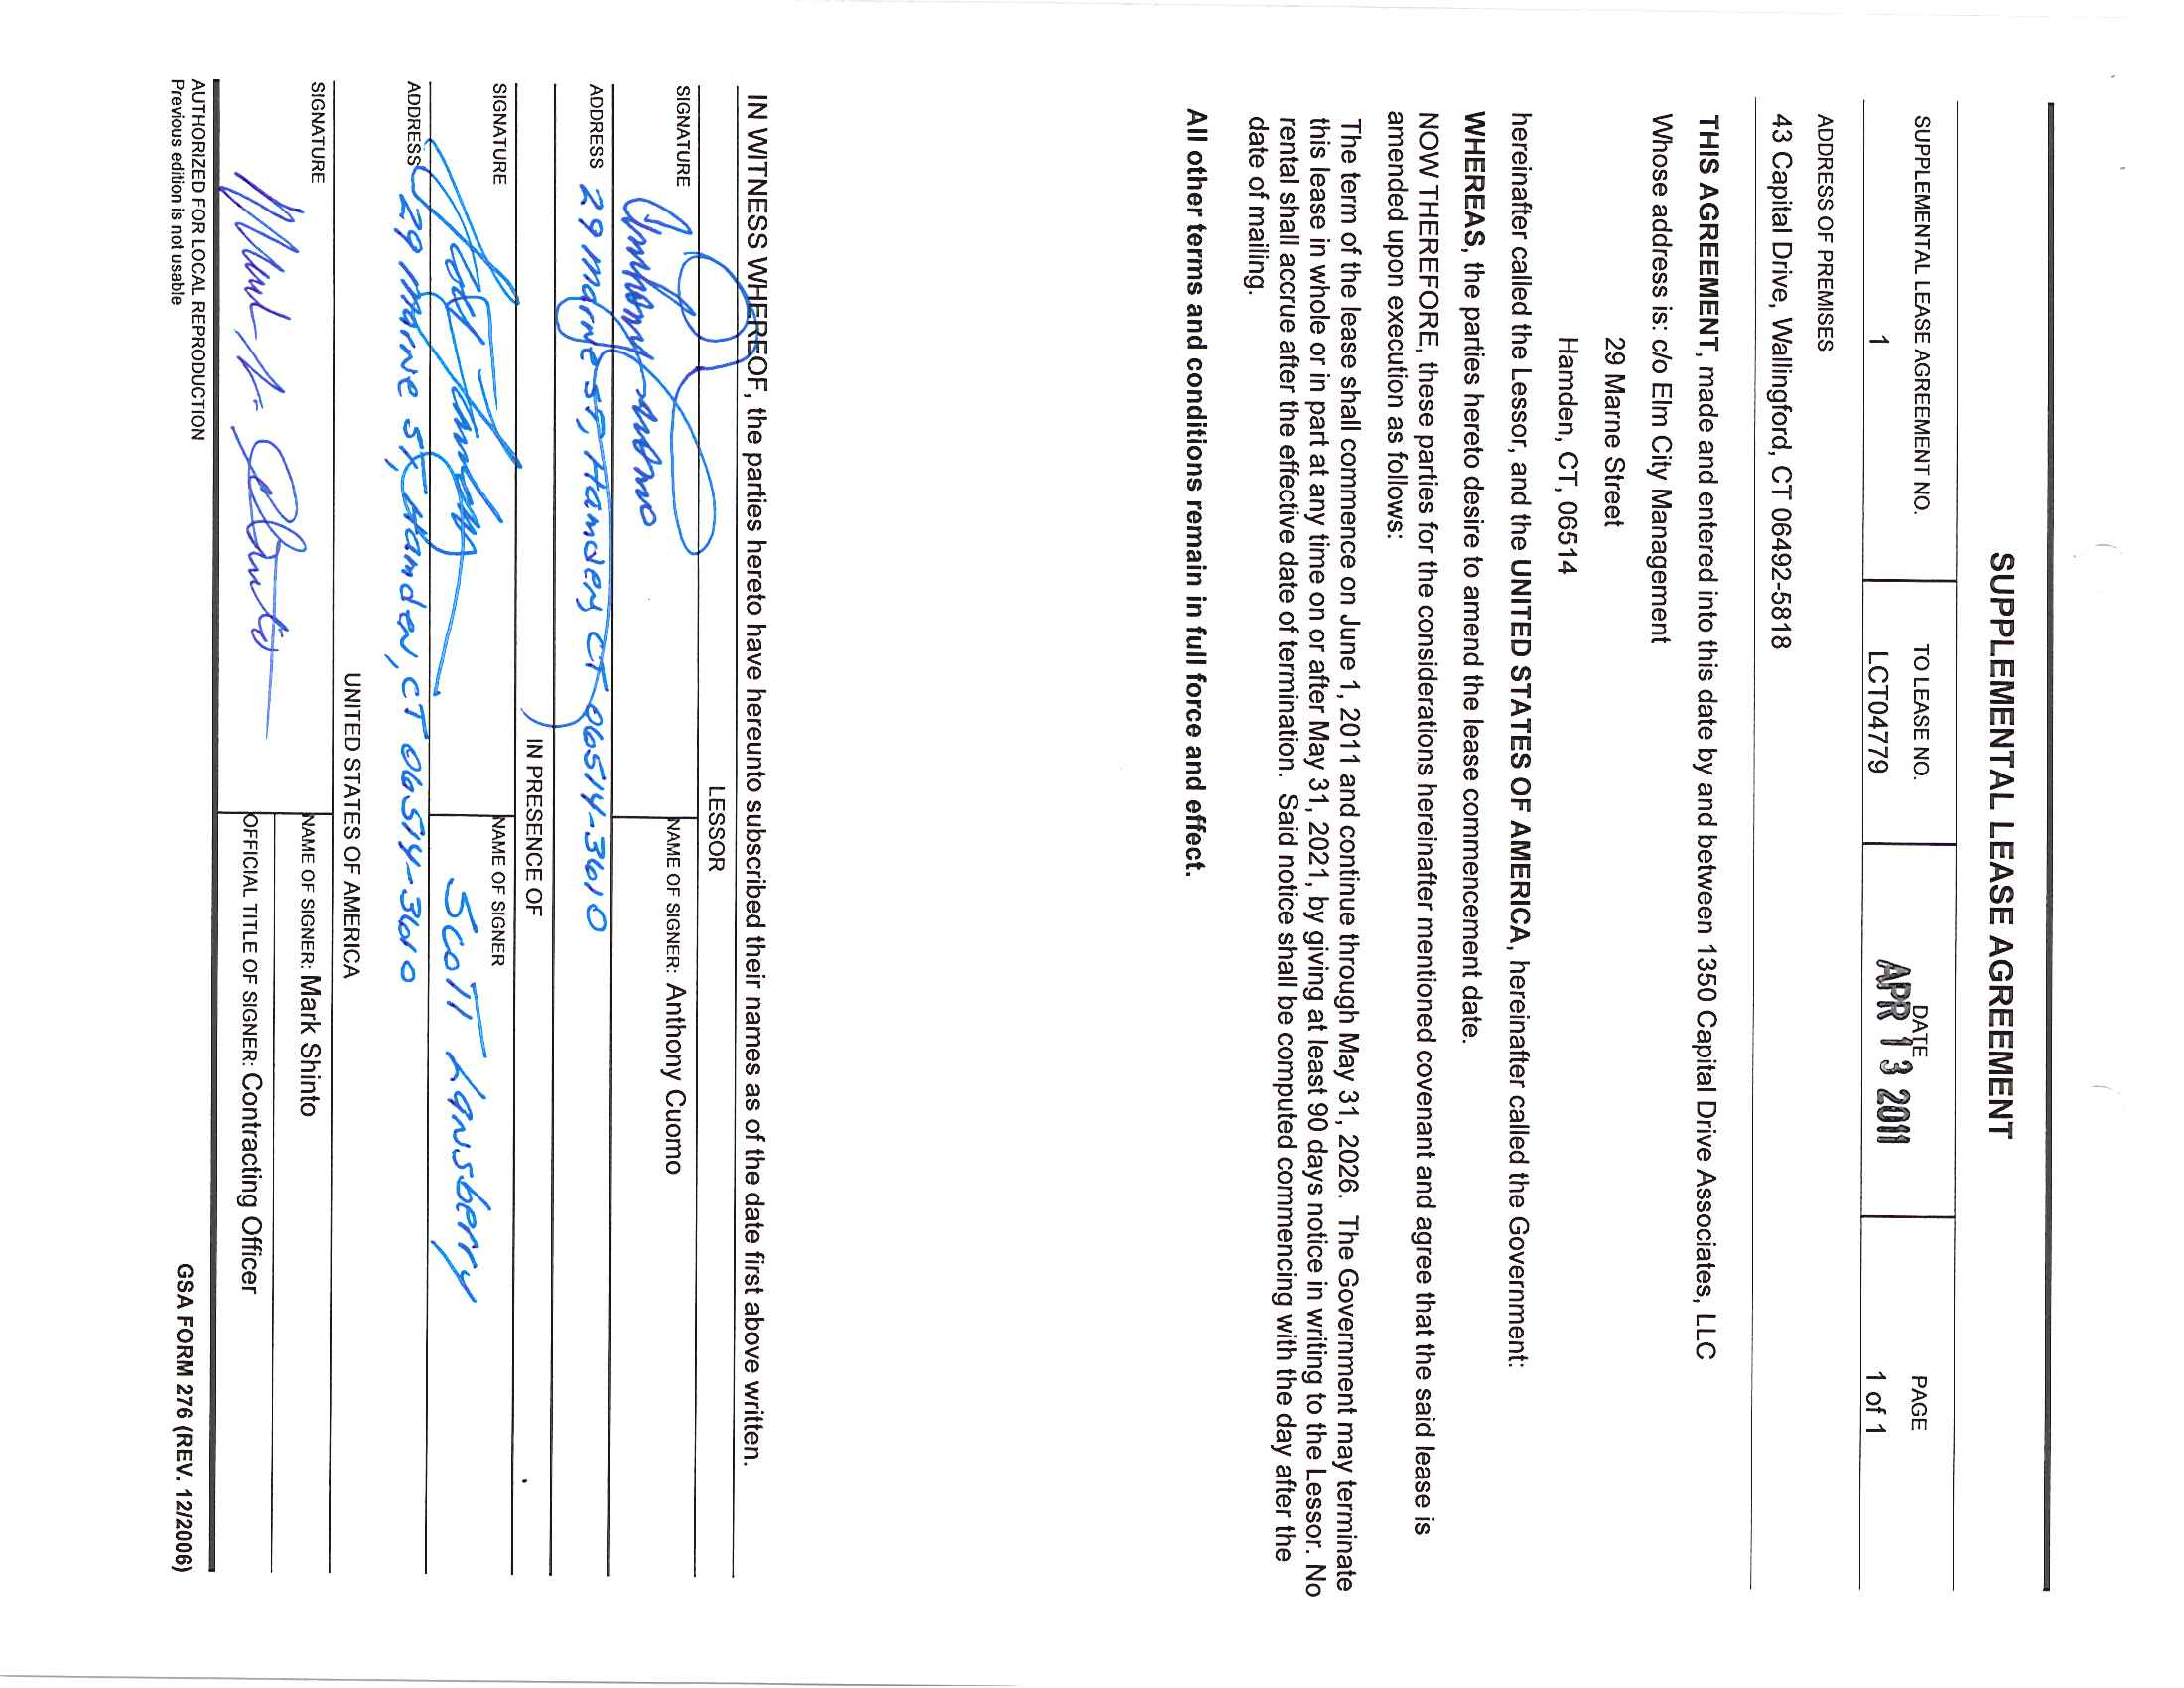 SUPPLEMENTAL LEASE AGREEMENT
SUPPLEMENTAL LEASE AGREEMENT NO. TO LEASE NO. DATE PAGE
1 LCT04779 APR 13 2011 1 of 1
ADDRESS OF PREMISES
43 Capital Drive, Wallingford, CT 06492-5818
THIS AGREEMENT, made and entered into this date by and between 1350 Capital Drive Associates, LLC
Whose address is: c/o Elm City Management
29 Marne Street
Hamden, CT, 06514
hereinafter called the Lessor, and the UNITED STATES OF AMERICA, hereinafter called the Government:
WHEREAS, the parties hereto desire to amend the lease commencement date.
NOW THEREFORE, these parties for the considerations hereinafter mentioned covenant and agree that the said lease is
amended upon execution as follows:
The term of the lease shall commence on June 1, 2011 and continue through May 31, 2026. The Government may terminate
this lease in whole or in part at any time on or after May 31, 2021, by giving at least 90 days notice in writing to the Lessor. No
rental shall accrue after the effective date of termination. Said notice shall be computed commencing with the day after the
date of mailing.
All other terms and conditions remain in full force and effect.
IN WITNESS WHEREOF, the parties hereto have hereunto subscribed their names as of the date first above written.
LESSOR
SIGNATURE NAME OF SIGNER: Anthony Cuomo
ADDRESS 29 Marne St, Hamden, CT 06514-3610
IN PRESENCE OF
SIGNATURE NAME OF SIGNER
Scott Lansberry
ADDRESS 29 Marne St, Hamden, CT 06514-3610
UNITED STATES OF AMERICA
SIGNATURE NAME OF SIGNER: Mark Shinto
OFFICIAL TITLE OF SIGNER: Contracting Officer
AUTHORIZED FOR LOCAL REPRODUCTION
Previous edition is not usable
GSA FORM 276 (REV. 12/2006)